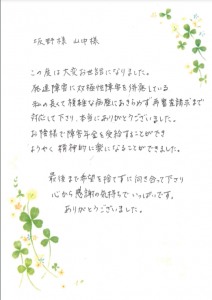 坂野様 山中様
この度は大変お世話になりました。
発達障害に双極性障害を併発している
私の長くて複雑な病歴にあきらめず再審査請求まで
対応して下り、本当にありがとうございました。
お陰様で障害年金を受給することができ
ようやく精神的に楽になることができました。
最後まで希望を捨てずに向き合って下り
心から感謝の気持ちでいっぱいです。
ありがとうございました。